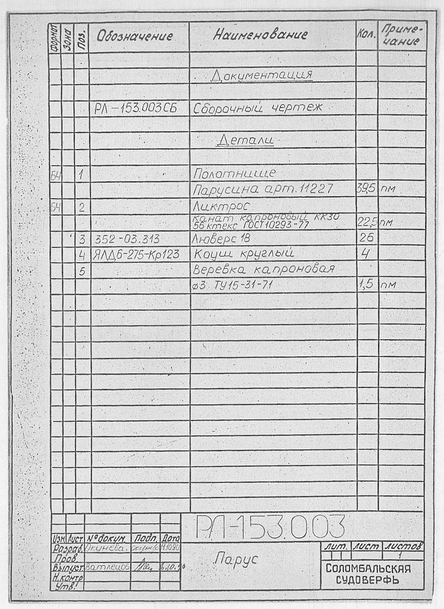 Формат Зона Поз. Обозначение Наименование Кол. Приме-чание
Документация
РЛ-153.003СБ Сборочный чертеж
Детали
БЧ 1 Полотнище
Парусина арт. 11227 39,5 пм
БЧ 2 Ликтрос
канат капроновый КК30
56 ктекс ГОСТ10293-77 22,5 пм
3 352-03.313 Люверс 18 26
4 ЯЛД6-275-Кр123 Коуш круглый 4
5 Веревка капроновая
ø3 ТУ15-31-71 1,5 пм
РЛ-153.003
Изм Лист № докум. Подп. Дата
Разраб.
Пров.
Выпуст
Н.контр
Утв.
Парус
Лит. Лист Листов
1
СОЛОМБАЛЬСКАЯ
СУДОВЕРФЬ